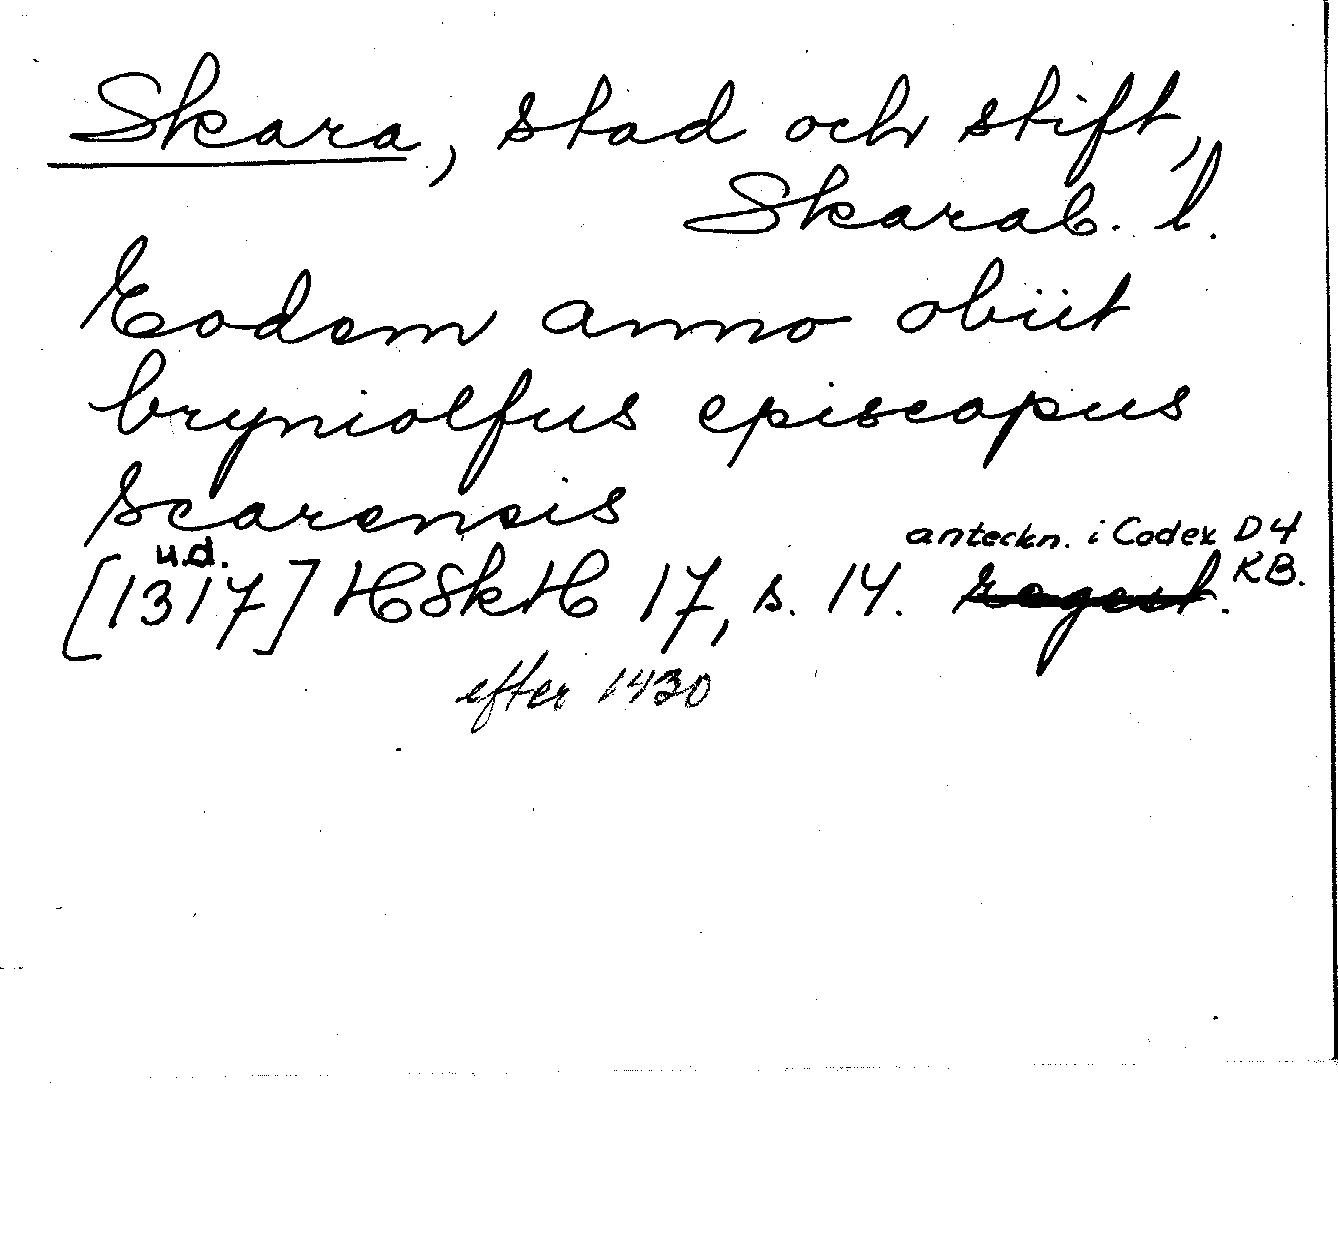 Skara, stad och stift,
Skarab. l.
Eodem anno obiit
bryniolfus episcopus
scarensis
u.d.
anteckn. i Codex D4
KB.
[1317] HSkH 17, s. 14. regest.
efter 1430